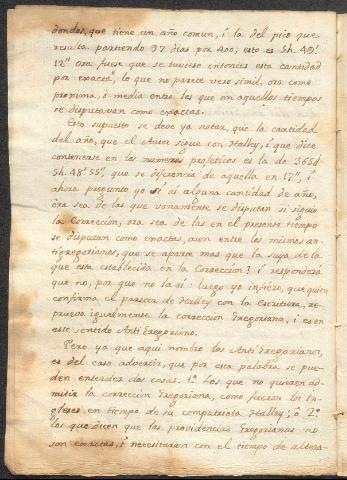 dondos, que tiene un año comun, i la del pico que
resulta partiendo 97 dias por 400, esto es 5h. 49'.
12'' Ora fuese que se tuviese entonces esta cantidad
por exacta, lo que no parece verosimil, ora como
proxima, i media entre las que en aquellos tiempos
se disputavan como exactas.
Esto supuesto se deve ya notar, que la cantidad
del año, que el Autor sigue con Halley, i que dice
contenerse en los numeros profeticos es la de 365d
5h. 48'. 55'', que se diferencia de aquella en 17'', i
ahora pregunto yo si ai alguna cantidad de año,
ora sea de las que vanamente se disputan si siguio
la Correccion, ora sea de las en el presente tiempo
se disputan como exactas, aun entre los mismos an-
tigregorianos, que se aparte mas que la suya de la
que esta establecida en la Correccion? i respondera
que no, por que no la ai: luego yo infiero, que quien
confirma el parecer de Halley con la Escritura, re-
prueva igualmente la correccion Gregoriana, i es en
este sentido Anti Gregoriano.
Pero ya que aqui nombro los Anti Gregorianos,
es del caso advertir, que por esta palabra se pue-
den entender dos cosas. 1.ª Los que no quisieron ad-
mitir la correccion Gregoriana, como fueron los In-
gleses en tiempo de su compatriota Halley; ò 2.ª
los que dicen que las providencias Gregorianas no
son exactas, i necesitaran con el tiempo de altera-